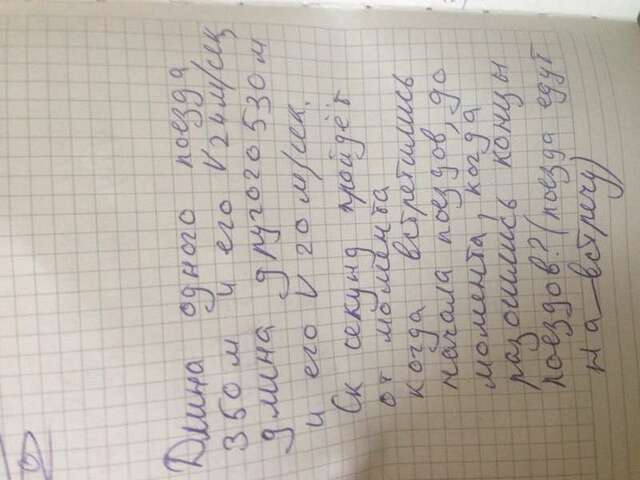 Длина одного поезда
350 м и его V 24 м/сек
длина другого 530 м
и его V 20 м/сек.
Ск секунд пройдёт
от момента
когда встретились
начала поездов, до
момента, когда
разошлись концы
поездов? (поезда едут
на встречу)